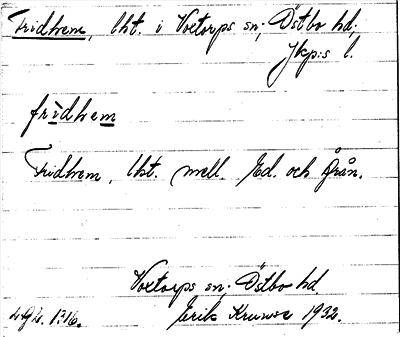 Fridhem, lht. i Voxtorps sn; Östbo hd;
Jkp:s l.
fridhem
Fridhem, lht. mell. Ed. och Från.
Voxtorps sn; Östbo hd.
Erik 1932.